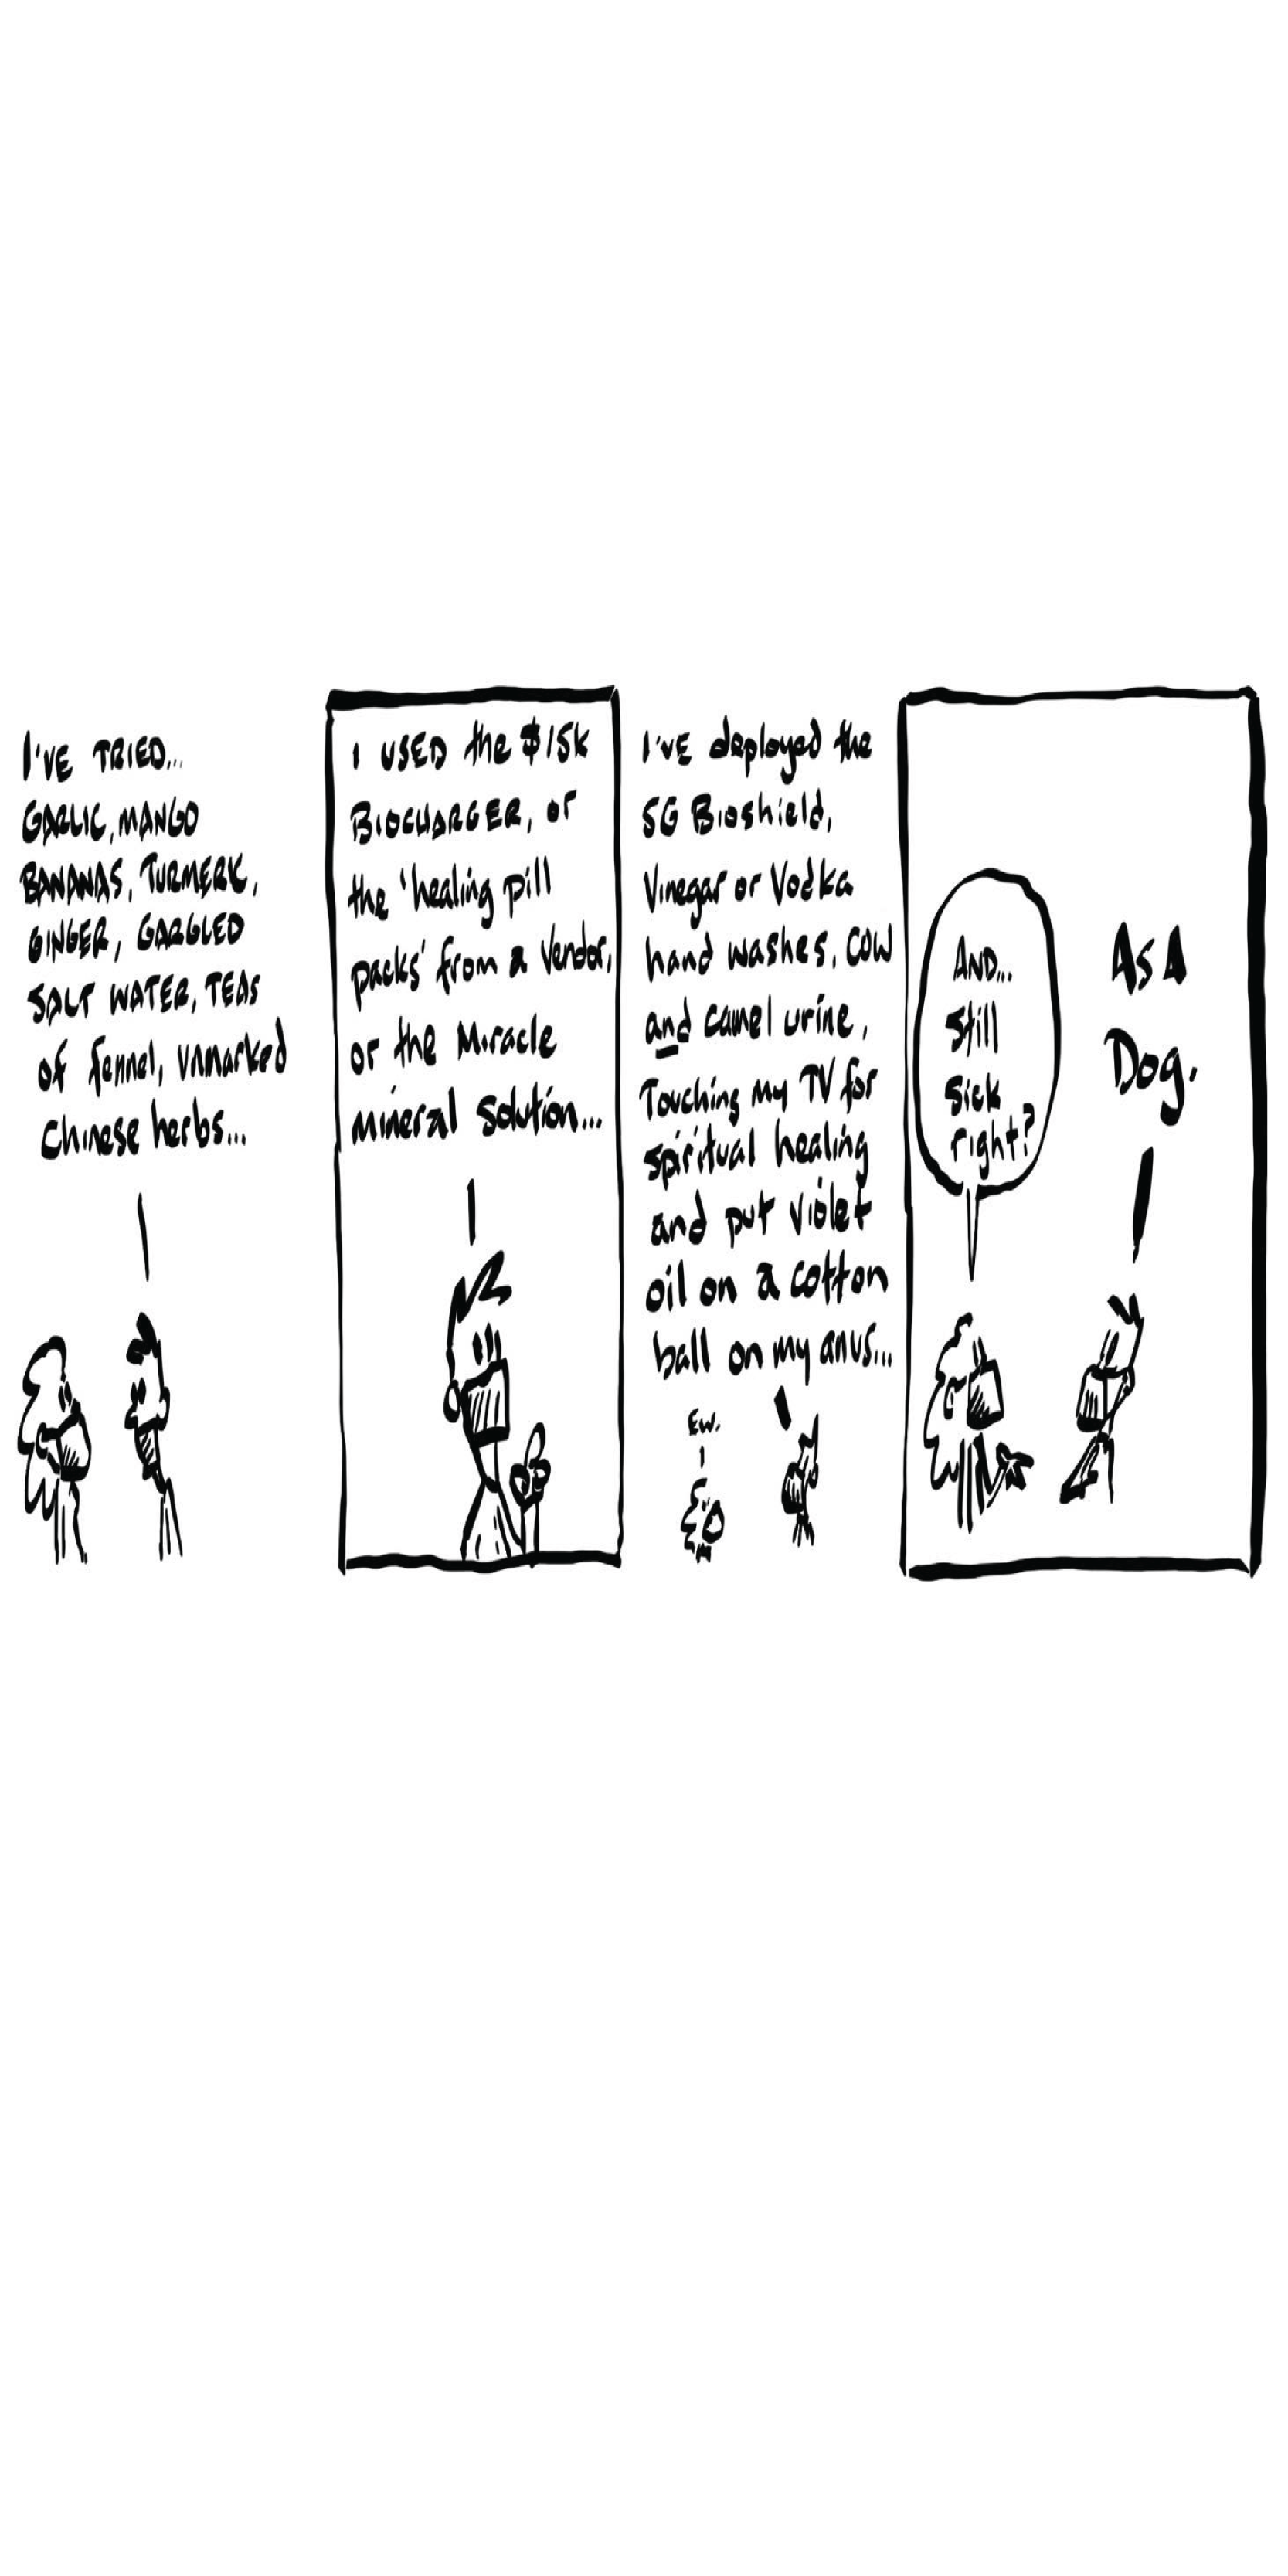 I'VE TRIED...
GARLIC, MANGO
BANANAS, TURMERIC,
GINGER, GARGLED
SALT WATER, TEAS
of fennel, unmarked
Chinese herbs...
I USED the $15K
BIOCHARGER, or
the 'healing pill
packs' from a Vendor,
or the Miracle
mineral solution...
I'VE deployed the
5G Bioshield,
Vinegar or Vodka
hand washes, COW
and camel urine,
Touching my TV for
spiritual healing
and put violet
oil on a cotton
ball on my anus...
EW.
AND...
Still
Sick
right?
AS A
Dog.